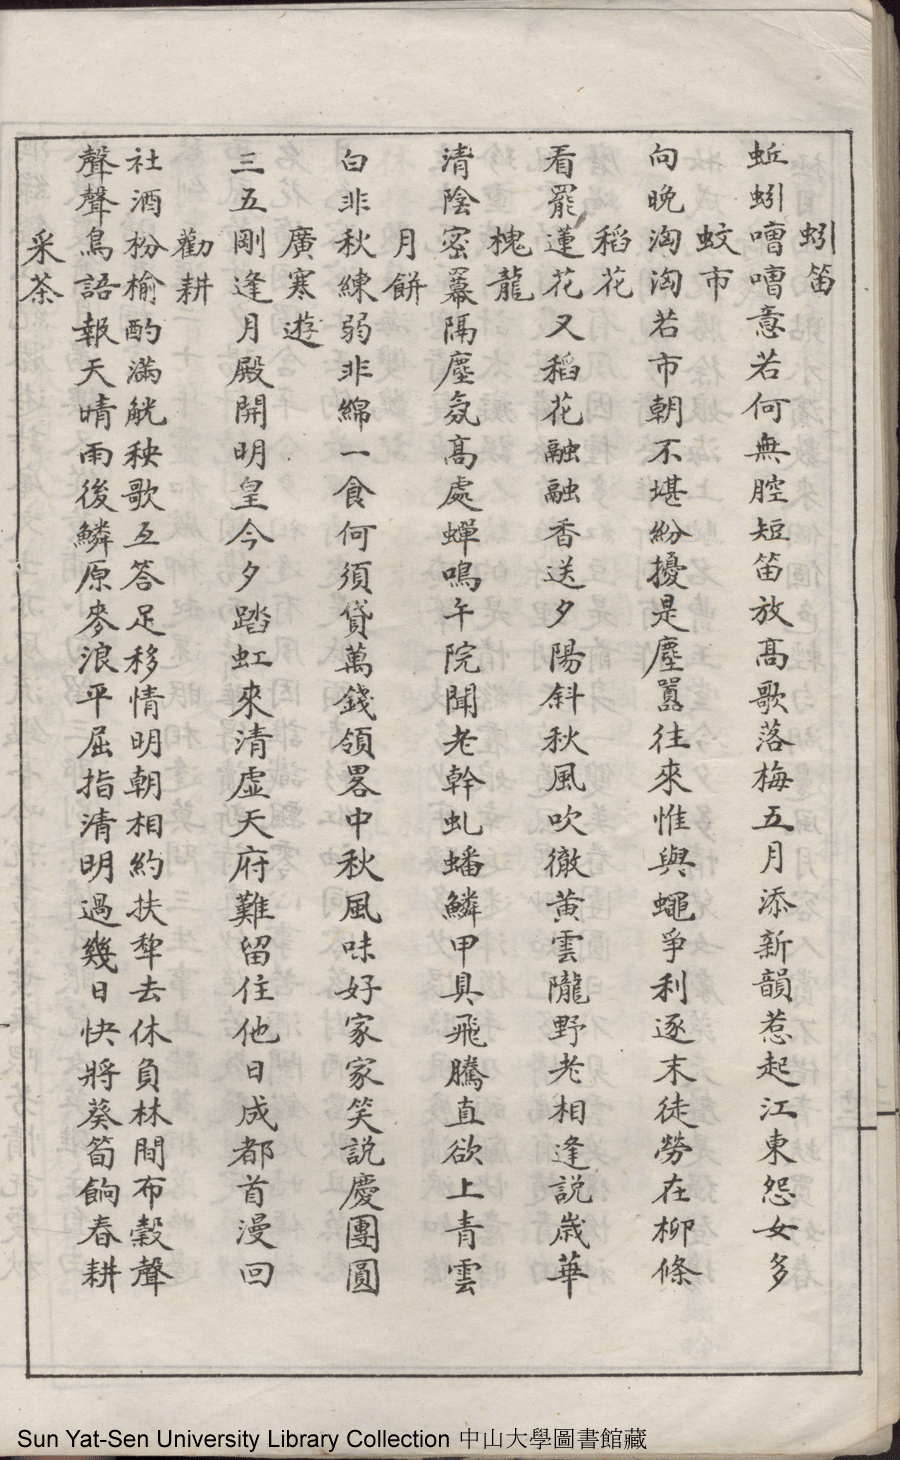 蚓笛
蚯蚓嘈嘈意若何無腔短笛放高歌落梅五月添新韻惹起江東怨女多
蚊市
向晚淘淘若市朝不堪紛擾是塵囂往來惟與蠅爭利逐末徒勞在柳條
稻花
看罷蓮花又稻花融融香送夕陽斜秋風吹徹黃雲隴野老相逢説歲華
槐龍
清陰密羃隔塵氛高處蟬鳴午院聞老幹虬蟠鱗甲具飛騰直欲上青雲
月餅
白非秋練弱非綿一食何須貸萬錢領畧中秋風味好家家笑説慶團圓
廣寒遊
三五剛逢月殿開明皇今夕踏虹來清虛天府難留住他日成都首漫回
勸耕
社酒枌榆酌滿觥秧歌互答足移情明朝相約扶犂去休負林間布穀聲
聲聲鳥語報天晴雨後鱗原麥浪平屈指清明過幾日快將葵筍餉春耕
采茶
Sun Yat-Sen University Library Collection 中山大學圖書館藏